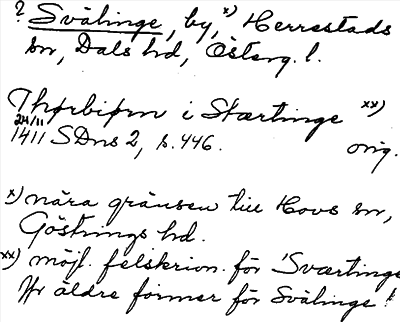 ? Svälinge, by, x) Herrestads
sn, Dals hd, Österg. l.
Thørbiørn i Stærtinge xx)
24/11
1411 SDns 2, s. 446. orig.
x) nära gränsen till Hovs sn,
Göstrings hd.
xx) möjl. felskrivn. för 'Sværtinge
Ytr äldre former för Svälinge!